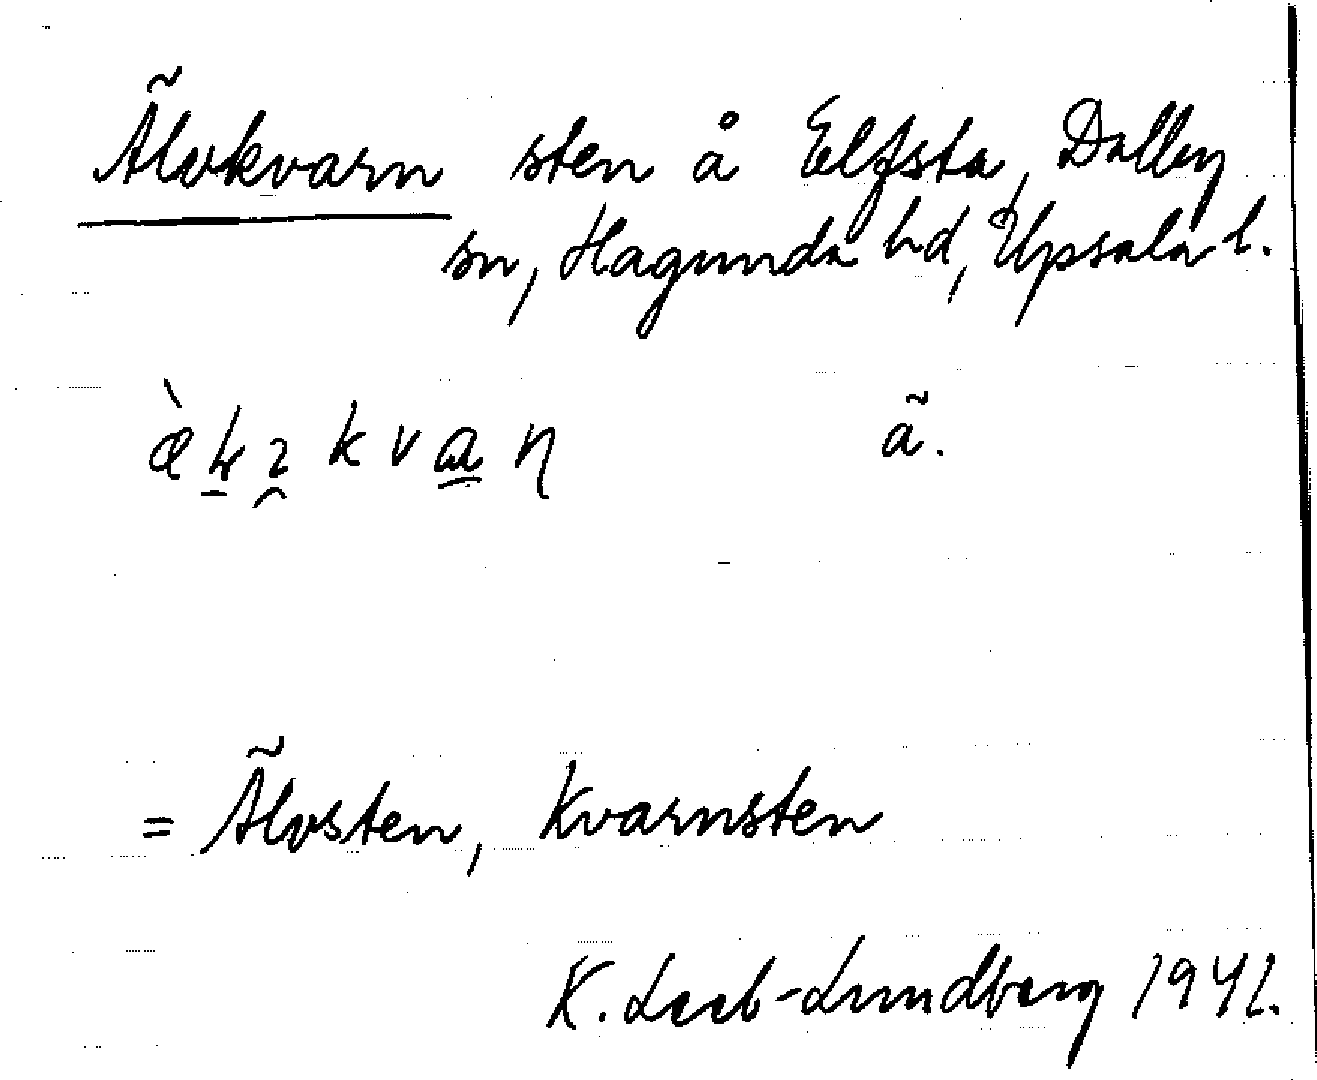 Älvkvarn sten å Elfsta, Dalby
sn, Hagunda hd, Upsala l.
ã.
= Älvsten, Kvarnsten
K. Leeb-Lundberg 1941.